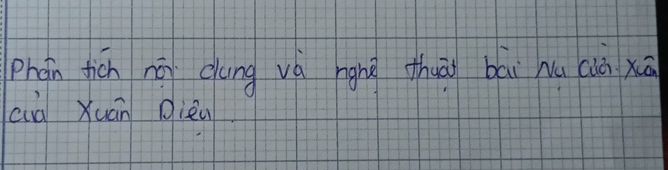 Phân tích nội dung và nghệ thuật bài Nụ cười Xuân
của Xuân Diệu.